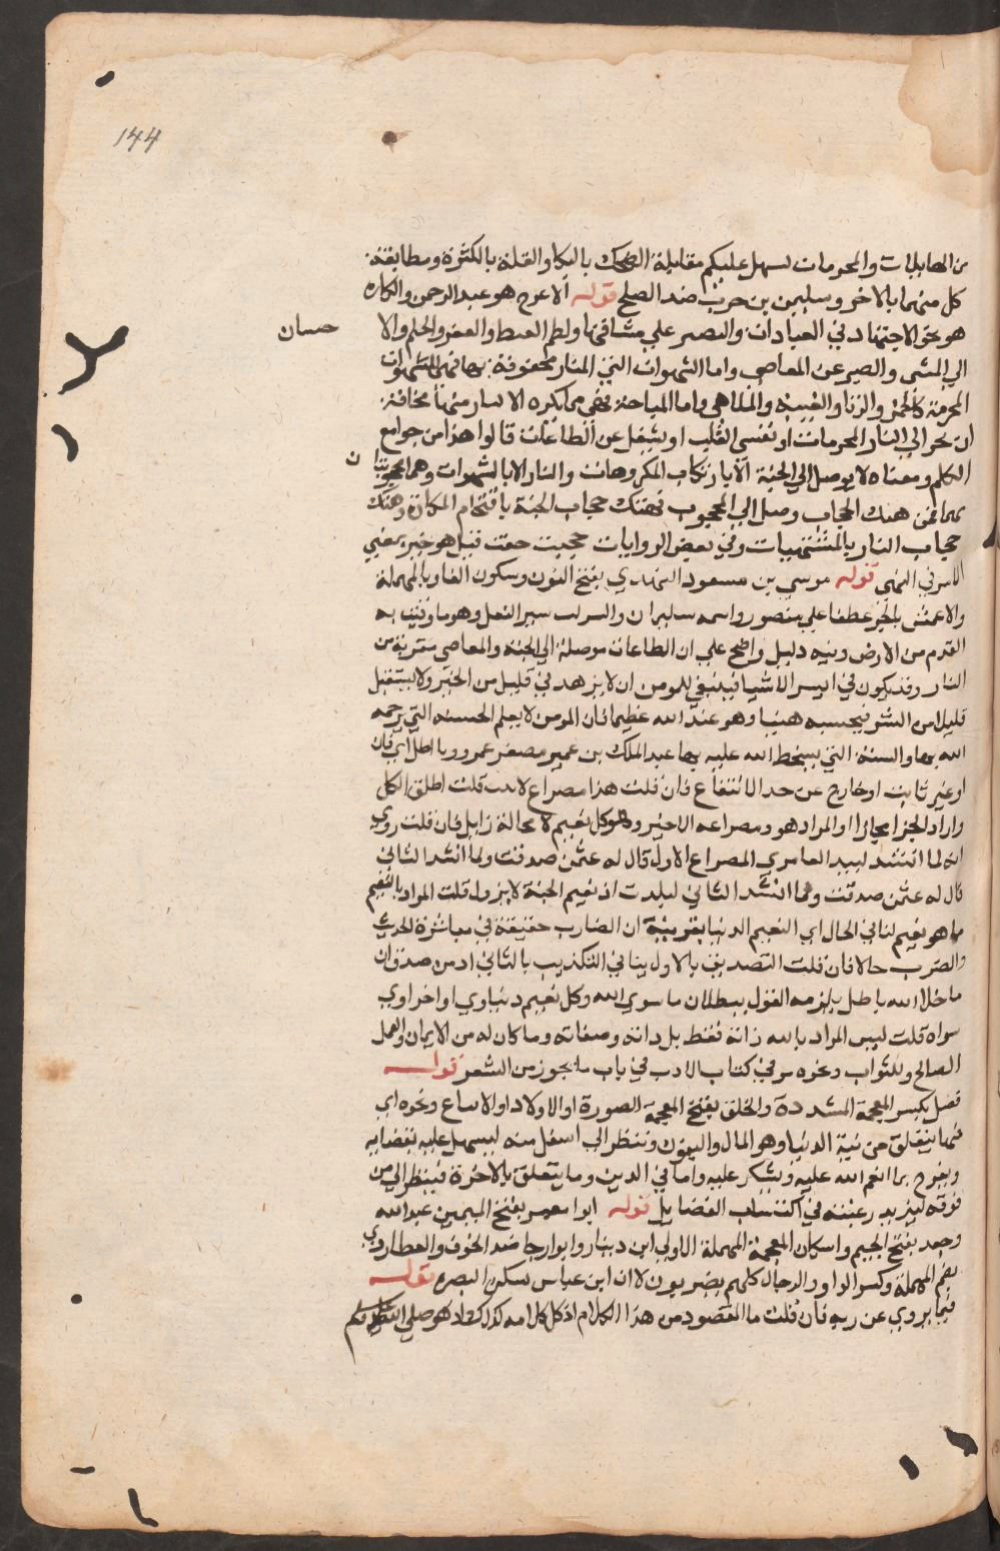 144
من المقابلات والمحرمات لسهل عليكم مقابلة الضحك بالبكا والقلة بالكثرة ومطابقة
كل منهما بالاخر وسليمن بن حرب ضد الصلح قوله الاعرج هو عبد الرحمن والمكاره
هو نحو الاجتهاد في العبادات والصبر علي مشاقها وكظم الغيظ والعفو والحلم والا
حسان
الي المسي والصبر عن المعاصي واما الشهوات التي النار محفوفة بها فهي الشهوات
المحرمة كالخمر والزنا والغيبة والملاهي واما المباحة فهي مما يكره الاكثار منها مخافة
ان تجر الي النار المحرمات او تقسي القلب او يشغل عن الطاعات قالوا هذا من جوامع
الكلم ومعناه لا يوصل الي الجنة الا بارتكاب المكروهات والنار الا بالشهوات وهما محجوبتا
ن
بهما فمن هتك الحجاب وصل الي المحجوب فهتك حجاب الجنة باقتحام المكاره وهتك
حجاب النار بالمشتهيات وفي بعض الروايات حجبت حفت قيل هو خبر بمعني
الامر في النهي قوله موسي بن مسعود النهدي بفتح النون وسكون الها وبالمهملة
والاعمش بالجر عطفا علي منصور واسمه سليمان والشراك سير النعل وهو ما وقيت به
القدم من الارض وفيه دليل واضح علي ان الطاعات موصلة الي الجنة والمعاصي مقربة من
النار وقد يكون في ايسر الاشيا فينبغي للمومن ان لا يزهد في قليل من الخير ولا يستقل
قليلا من الشر فيحسبه هينا وهو عند الله عظيما فان المومن لا يعلم الحسنه التي يرحمه
الله بها والسيئة التي يسخط الله عليه بها عبد الملك بن عمير مصغر عمرو وباطل اي فان
او غير ثابت او خارج عن حد الانتفاع فان قلت هذا مصراع لا بيت قلت اطلق الكل
واراد الجزء مجازا او المراد هو ومصراعه الاخير وهو وكل نعيم لا محالة زايل فان قلت روي
انه لما انشد لبيد العامري المصراع الاول قال له عثمن صدقت ولما انشد الثاني
قال له عثمن صدقت ولما انشد الثاني لبلدت اذ نعيم الجنة لا يزول قلت المراد بالنعيم
ما هو نعيم لنا في الحال اي النعيم الدنيا بقرينة ان الضارب حقيقة في مباشرة الحدث
والضرب حالا فان قلت التصديق بالاول ينافي التكذيب بالثاني اذ من صدق ان
ما خلا الله باطل يلزمه القول ببطلان ما سوي الله وكل نعيم دنياوي او اخراوي
سواه قلت ليس المراد بالله ذاته فقط بل ذاته وصفاته وما كان له من الايمان والعمل
الصالح والثواب ونحوه مر في كتاب الادب في باب ما يجوز من الشعر قوله
فضل بكسر المعجمة المشددة والخلق بفتح المعجمة الصورة او الاولاد او الاتباع ونحوه اي
فيما يتعلق من نية الدنيا وهو المال والبهوك وننظر الي اسفل منه ليسهل عليه نقصانه
ويفرح بما انعم الله عليه ويشكر عليه واما في الدين وما يتعلق بالاخرة فينظر الي من
فوقه ليزيد رغبته في اكتساب الفضايل قوله ابو معمر بفتح الميمين عبد الله
وجعد بفتح الجيم واسكان المعجمة المهملة الاولي ابن دينار وابو رجا ضد الخوف والعطاردي
بضم المهملة وكسر الدا ور الرجال كلهم بصريون لا ان ابن عباس سكن البصره قوله
فيما يروي عن ربه فان قلت ما المقصود من هذا الكلام اذ كل كلامه كذلك